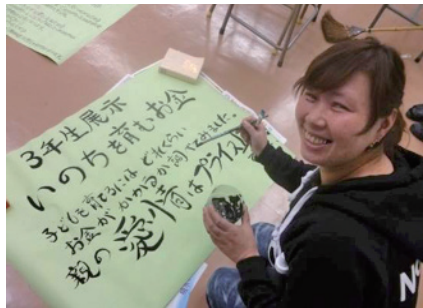 3年生展示
いのちを育むお金
子どもを育てるには どれくらい
お金がかかるか調べてみました。
親の愛情はプライス
N